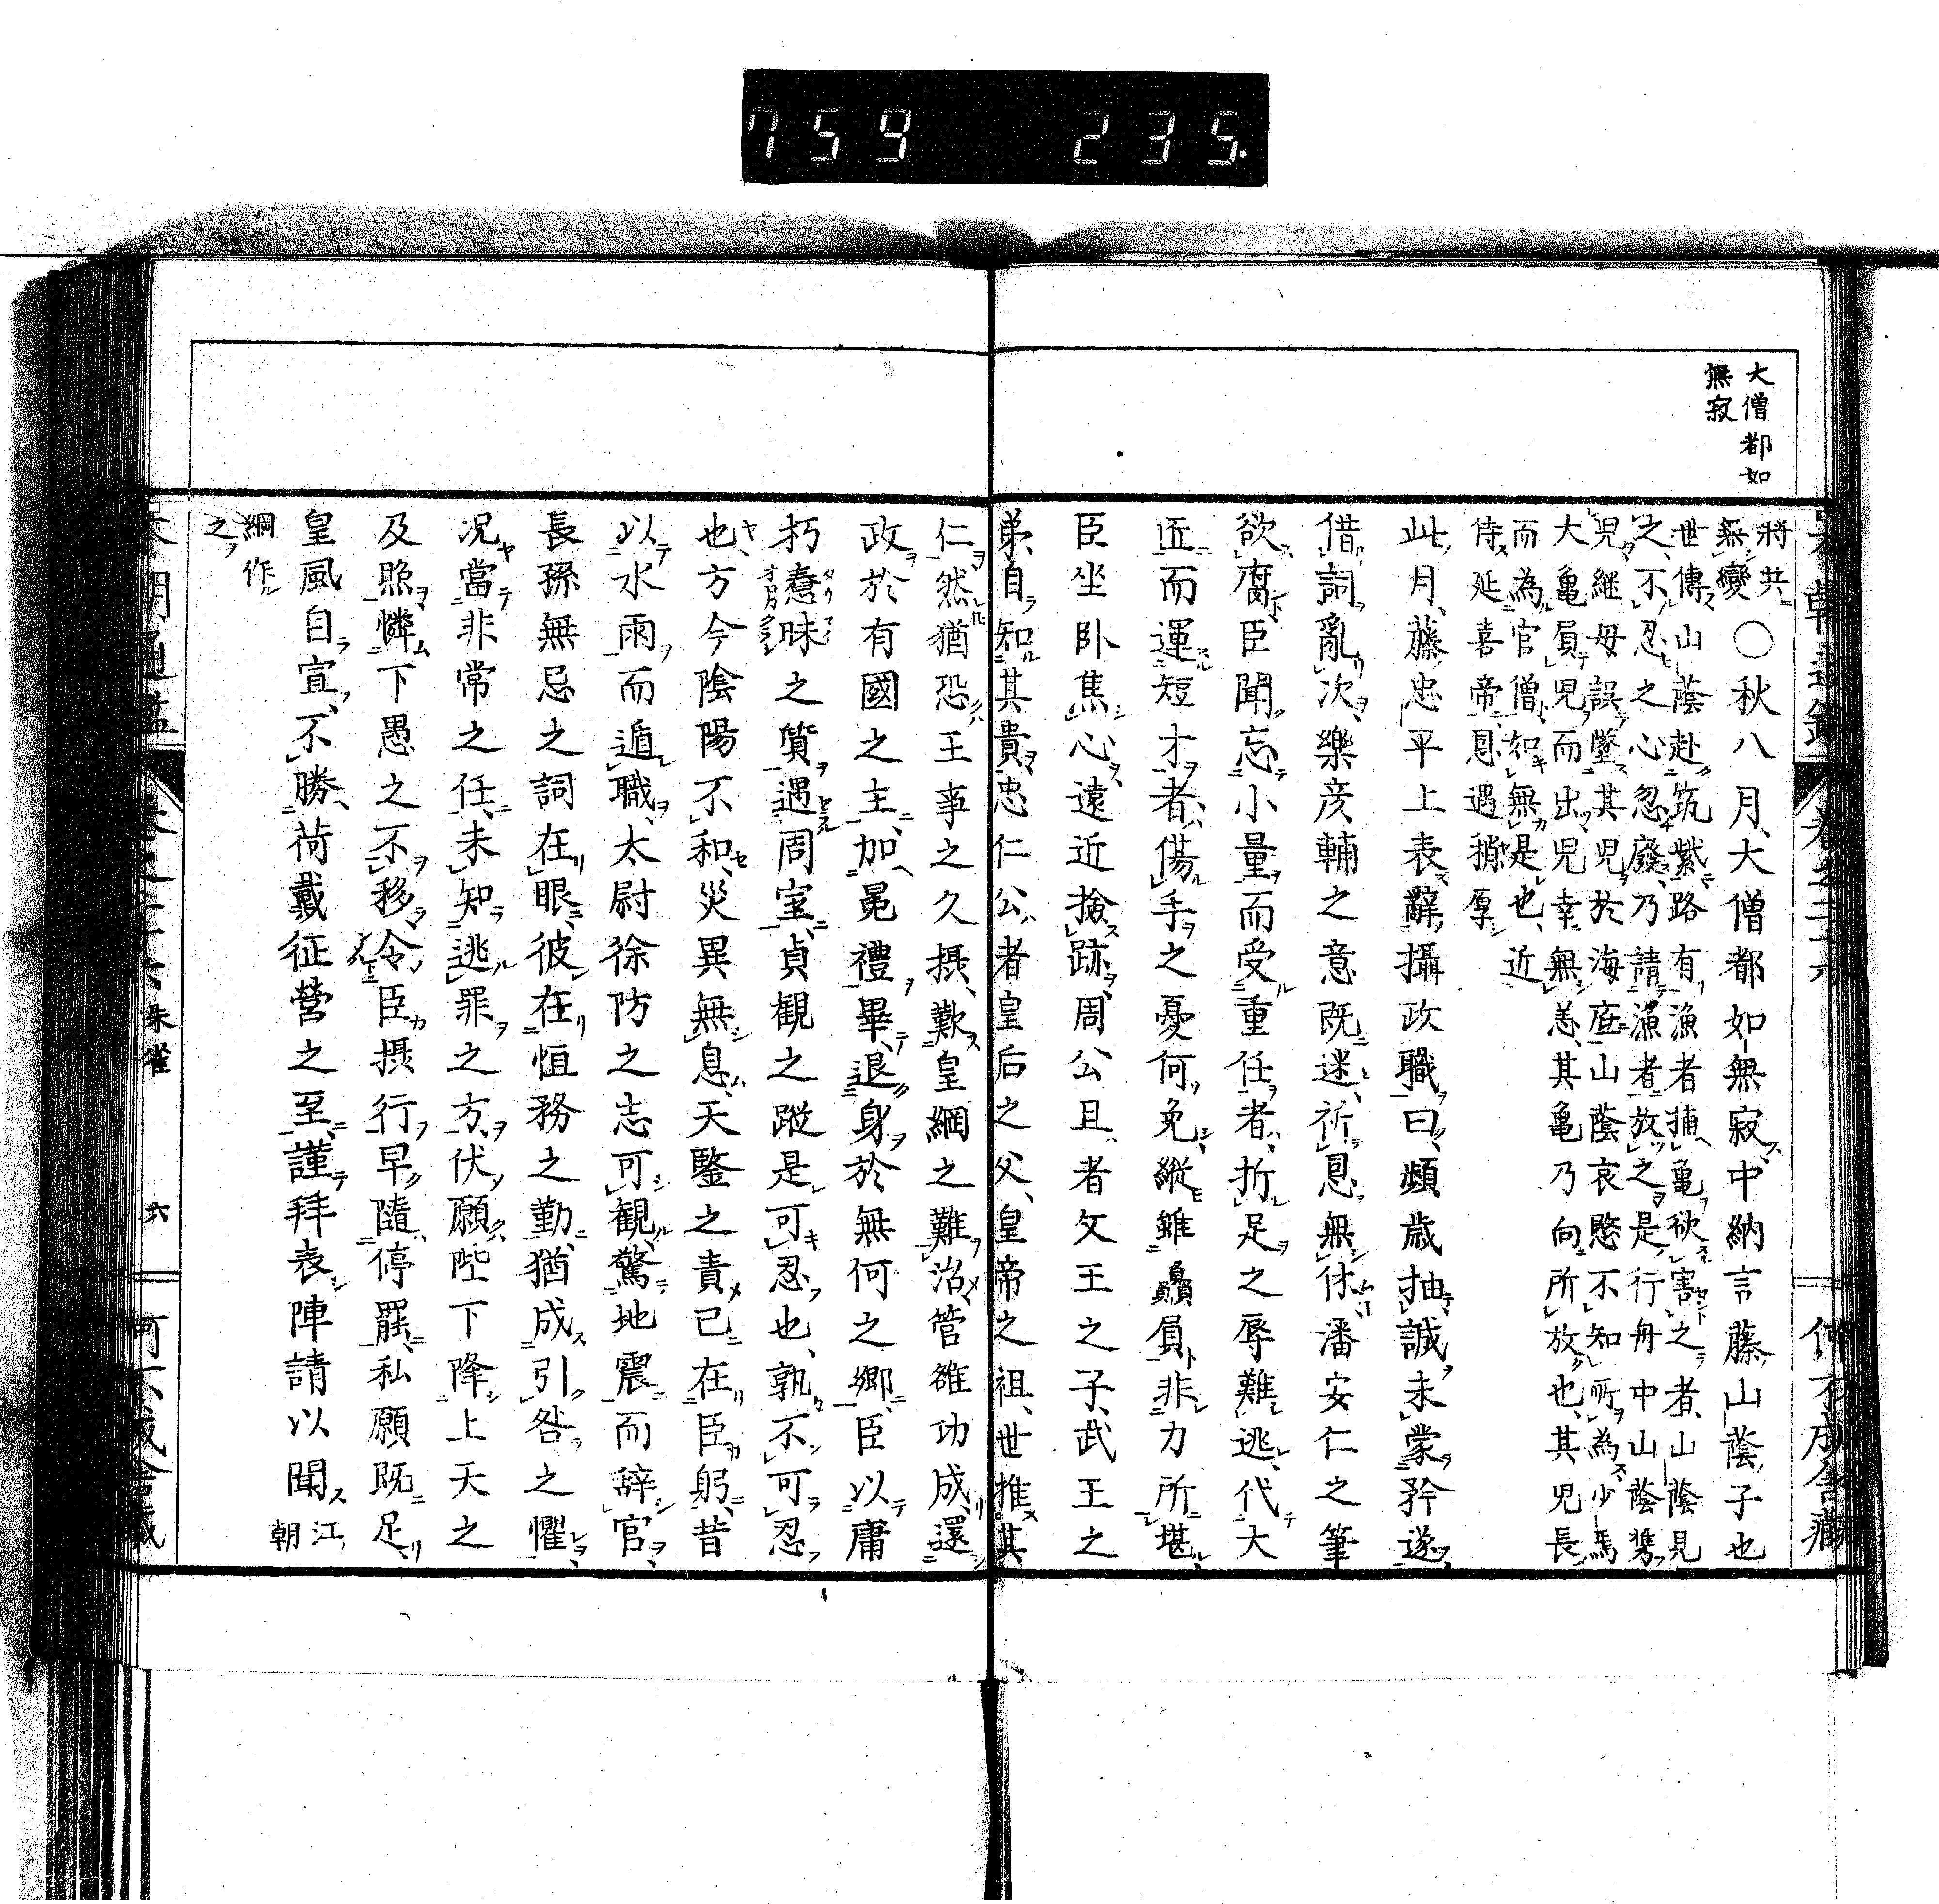 759 235.
大僧都如
無寂
將共
無變
○秋八月、大僧都如無寂、中納言藤山蔭子也
世傳山蔭赴筑紫路有漁者捕亀欲害之者、山蔭見
之、不忍之心忽癈、乃請漁者放之是行舟中山蔭携
児継母誤墜其児於海底山蔭哀愍不知所為少焉
大亀屓児而出児幸無恙、其亀乃向所放也、其児長
而為官僧如無是也、近
侍延喜帝恩遇稍厚
此月、藤忠平上表辭攝政職曰、頻歳抽誠未蒙矜遂、
借詞亂次、樂彦輔之意既迷、祈恩無休潘安仁之筆
欲腐臣聞忘小量而受重任者、折足之辱難逃、代大
匠而運短才者、傷手之憂何免、縦雖贔屓非力所堪、
臣坐卧焦心、遠近撿跡、周公旦者文王之子、武王之
弟、自知其貴、忠仁公者皇后之父、皇帝之祖、世推其
仁、然猶恐王事之久摂、歎皇綱之難治、管雖功成、還
政於有國之主、加冕禮畢、退身於無何之郷、臣以庸
朽惷昧之質遇周室、貞観之蹤是可忍也、孰不可忍
也、方今陰陽不和、災異無息、天鑒之責已在臣躬、昔
以水雨而遁職、太尉徐防之志可観、驚地震而辞官、
長孫無忌之詞在眼、彼在恒務之勤、猶成引咎之懼、
况當非常之任、未知逃罪之方、伏願陛下降上天之
及照憐下愚之不移、令臣摂行早隨停罷、私願既足、
皇風自宣、不勝荷戴征營之至、謹拜表陣請以聞 江朝
綱作
之
本朝通鑑 巻之二十六 朱雀 六